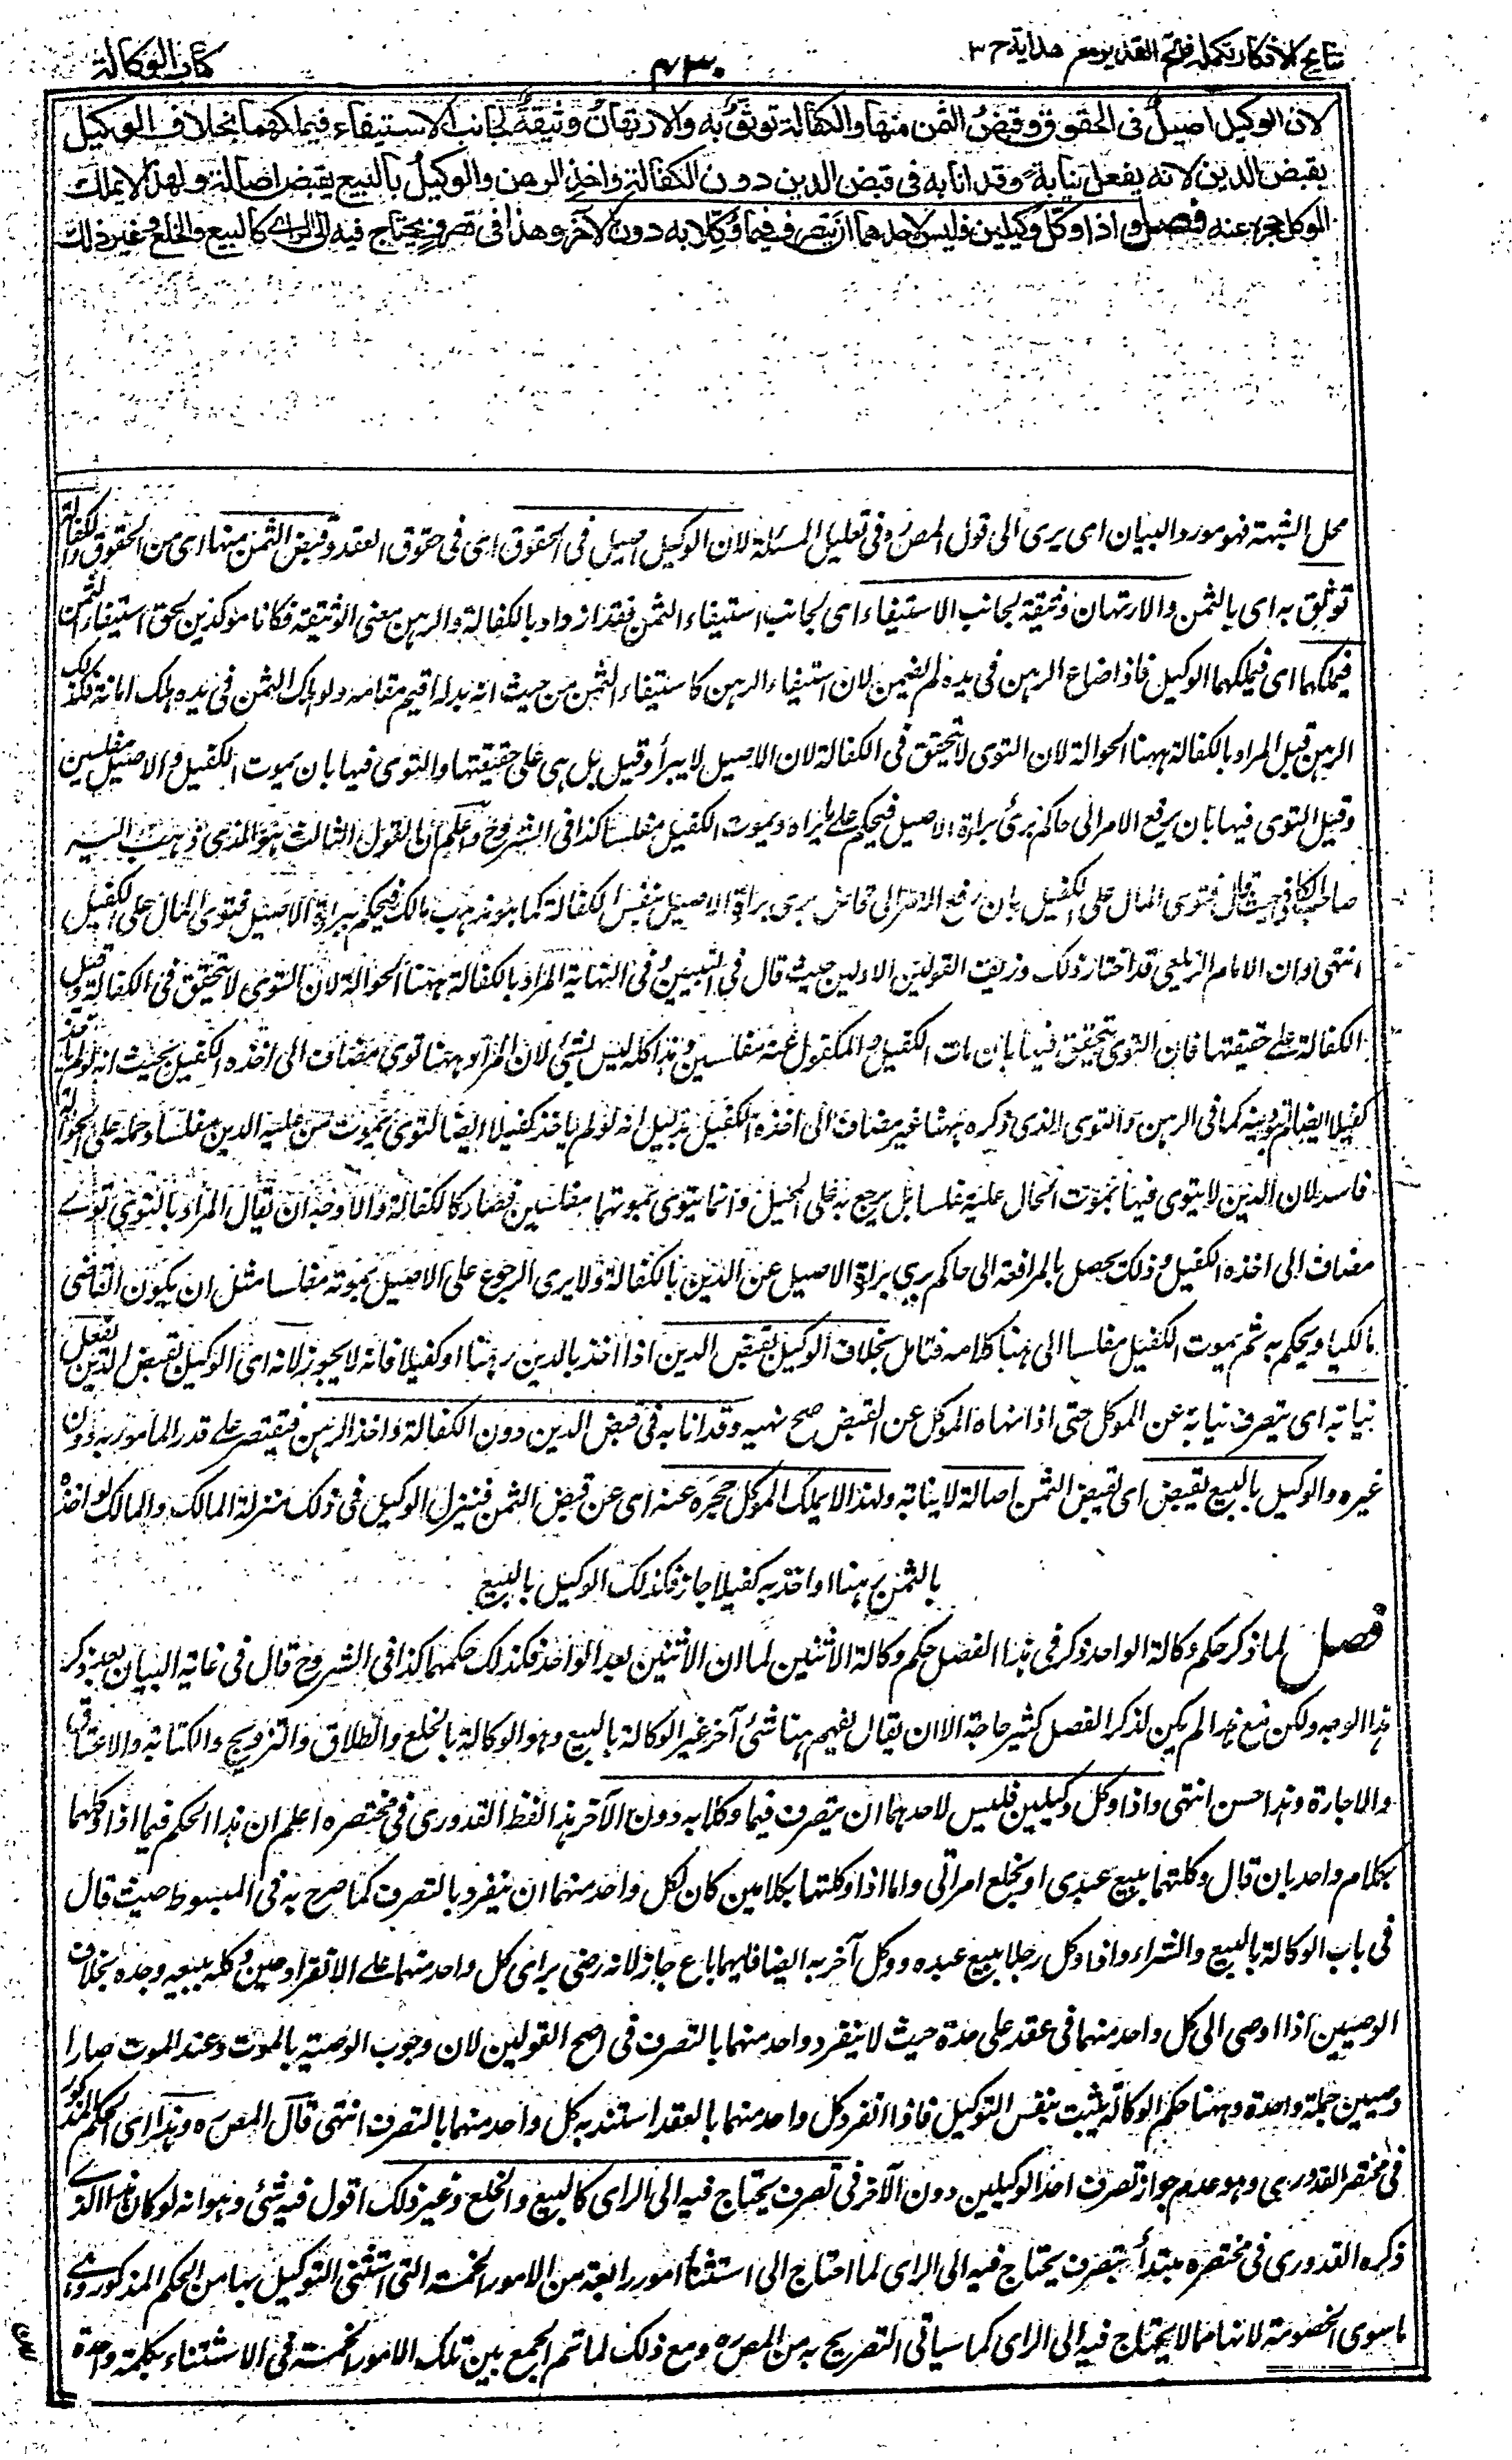 نتائج الافكار تكملة فتح القدير مع هداية ج ٣
٤٣٠
كتاب الوكالة
لان الوكيل اصيل فى الحقوق وقبض الثمن منها والكفالة توثق به والارتهان وثيقة لجانب الاستيفاء فيملكهما بخلاف الوكيل
بقبض الدين لانه يفعل نيابة وقد انابه فى قبض الدين دون الكفالة واخذ الرهن والوكيل بالبيع يقبض اصالة ولهذا لا يملك
الموكل حجره عنه فصل واذا وكل وكيلين فليس لاحدهما ان يتصرف فيما وكلا به دون الآخر وهذا فى تصرف يحتاج فيه الى الراى كالبيع والخلع وغير ذلك
محل الشبهة فهو مورد البيان اى يرى الى قول المصنف ره فى تعليل المسئلة لان الوكيل اصيل فى الحقوق اى فى حقوق العقد وقبض الثمن منها اى من الحقوق والكفالة
توثق به اى بالثمن والارتهان وثيقة لجانب الاستيفاء اى لجانب استيفاء الثمن فقد ازداد بالكفالة والرهن معنى الوثيقة فكانا موكدين لحق استيفاء الثمن
فيملكهما اى فيملكهما الوكيل فاذا ضاع الرهن فى يده لم يضمن لان استيفاء الرهن كاستيفاء الثمن من حيث انه بدله اقيم مقامه ولو هلك الثمن فى يده هلك امانة فكذلك
الرهن قيل المراد بالكفالة ههنا الحوالة لان التوى لا يتحقق فى الكفالة لان الاصيل لا يبرأ وقيل بل هى على حقيقتها والتوى فيها بان يموت الكفيل والاصيل مفلسين
وقيل التوى فيها بان يرفع الامر الى حاكم يرى براءة الاصيل فيحكم على ما يراه ويموت الكفيل مفلسا كذا فى الشروح واعلم ان القول الثالث هو الذى ذهب اليه
صاحب الكافى حيث قال فتوى المال على الكفيل بان رفع الامر الى قاض يرى براءة الاصيل بنفس الكفالة كما هو مذهب مالك فيحكم ببراءة الاصيل فتوى المال على الكفيل
انتهى وان الامام الزيلعى قد اختار ذلك وزيف القولين الاولين حيث قال فى التبيين وفى النهاية المراد بالكفالة ههنا الحوالة لان التوى لا يتحقق فى الكفالة وقيل
الكفالة على حقيقتها فان التوى يتحقق فيها بان مات الكفيل والمكفول عنه مفلسين وهذا كله ليس بشئ لان المراد ههنا توى مضاف الى اخذه الكفيل بحيث انه لو لم ياخذ
كفيلا ايضا لم يتو دينه كما فى الرهن والتوى الذى ذكره ههنا غير مضاف الى اخذه الكفيل بدليل انه لو لم ياخذ كفيلا ايضا لتوى بموت من عليه الدين مفلسا وحمله على الحوالة
فاسد لان الدين لا يتوى فيها بموت المحال عليه مفلسا بل يرجع به على المحيل وانما يتوى بموتهما مفلسين فصار كالكفالة والاوجه ان يقال المراد بالتوى توى
مضاف الى اخذه الكفيل وذلك يحصل بالمرافعة الى حاكم يرى براءة الاصيل عن الدين بالكفالة ولا يرى الرجوع على الاصيل بموته مفلسا مثل ان يكون القاضى
مالكيا ويحكم به ثم يموت الكفيل مفلسا الى هنا كلامه فتامل بخلاف الوكيل بقبض الدين اذا اخذ بالدين رهنا او كفيلا فانه لا يجوز لانه اى الوكيل بقبض الدين يفعل
نيابة اى يتصرف نيابة عن الموكل حتى اذا نهاه الموكل عن القبض صح نهيه وقد انابه فى قبض الدين دون الكفالة واخذ الرهن فيقتصر على قدر المامور به دون
غيره والوكيل بالبيع يقبض اى يقبض الثمن اصالة لا نيابة ولهذا لا يملك الموكل حجره عنه اى عن قبض الثمن فينزل الوكيل فى ذلك منزلة المالك والمالك لو اخذ
بالثمن رهنا او اخذ به كفيلا جاز فكذلك الوكيل بالبيع
فصل لما ذكر حكم وكالة الواحد ذكر فى هذا الفصل حكم وكالة الاثنين لما ان الاثنين بعد الواحد فكذلك حكمهما كذا فى الشروح قال فى غاية البيان بعد ذكر
هذا الوجه ولكن مع هذا لم يكن لذكر الفصل كثير حاجة الا ان يقال يفهم هنا شئ آخر غير الوكالة بالبيع وهو الوكالة بالخلع والطلاق والتزويج والكتابة والاعتاق
والاجارة وهذا حسن انتهى واذا وكل وكيلين فليس لاحدهما ان يتصرف فيما وكلا به دون الآخر هذا لفظ القدورى فى مختصره اعلم ان هذا الحكم فيما اذا وكلهما
بكلام واحد بان قال وكلتكما ببيع عبدى او بخلع امراتى واما اذا وكلهما بكلامين كان لكل واحد منهما ان ينفرد بالتصرف كما صرح به فى المبسوط حيث قال
فى باب الوكالة بالبيع والشراء واذا وكل رجلا ببيع عبده ووكل آخر به ايضا فايهما باع جاز لانه رضى براى كل واحد منهما على الانفراد حين وكله ببيعه وحده بخلاف
الوصيين اذا اوصى الى كل واحد منهما فى عقد على حدة حيث لا ينفرد واحد منهما بالتصرف فى اصح القولين لان وجوب الوصية بالموت وعند الموت صارا
وصيين جملة واحدة وههنا حكم الوكالة يثبت بنفس التوكيل فاذا انفرد كل واحد منهما بالعقد استبد به كل واحد منهما بالتصرف انتهى قال المصنف ره وهذا اى الحكم المذكور
فى مختصر القدورى وهو عدم جواز تصرف احد الوكيلين دون الآخر فى تصرف يحتاج فيه الى الراى كالبيع والخلع وغير ذلك اقول فيه شئ وهو انه لو كان مراد الذى
ذكره القدورى فى مختصره مبتدأ بتصرف يحتاج فيه الى الراى لما احتاج الى استثناء امور رابعة من الامور الخمسة التى استثنى التوكيل بها من الحكم المذكور وهى
ما سوى الخصومة لانها مما لا يحتاج فيه الى الراى كما سياتى التصريح به من المصنف ره ومع ذلك لما تم الجمع بين تلك الامور الخمسة فى الاستثناء بكلمة واحدة